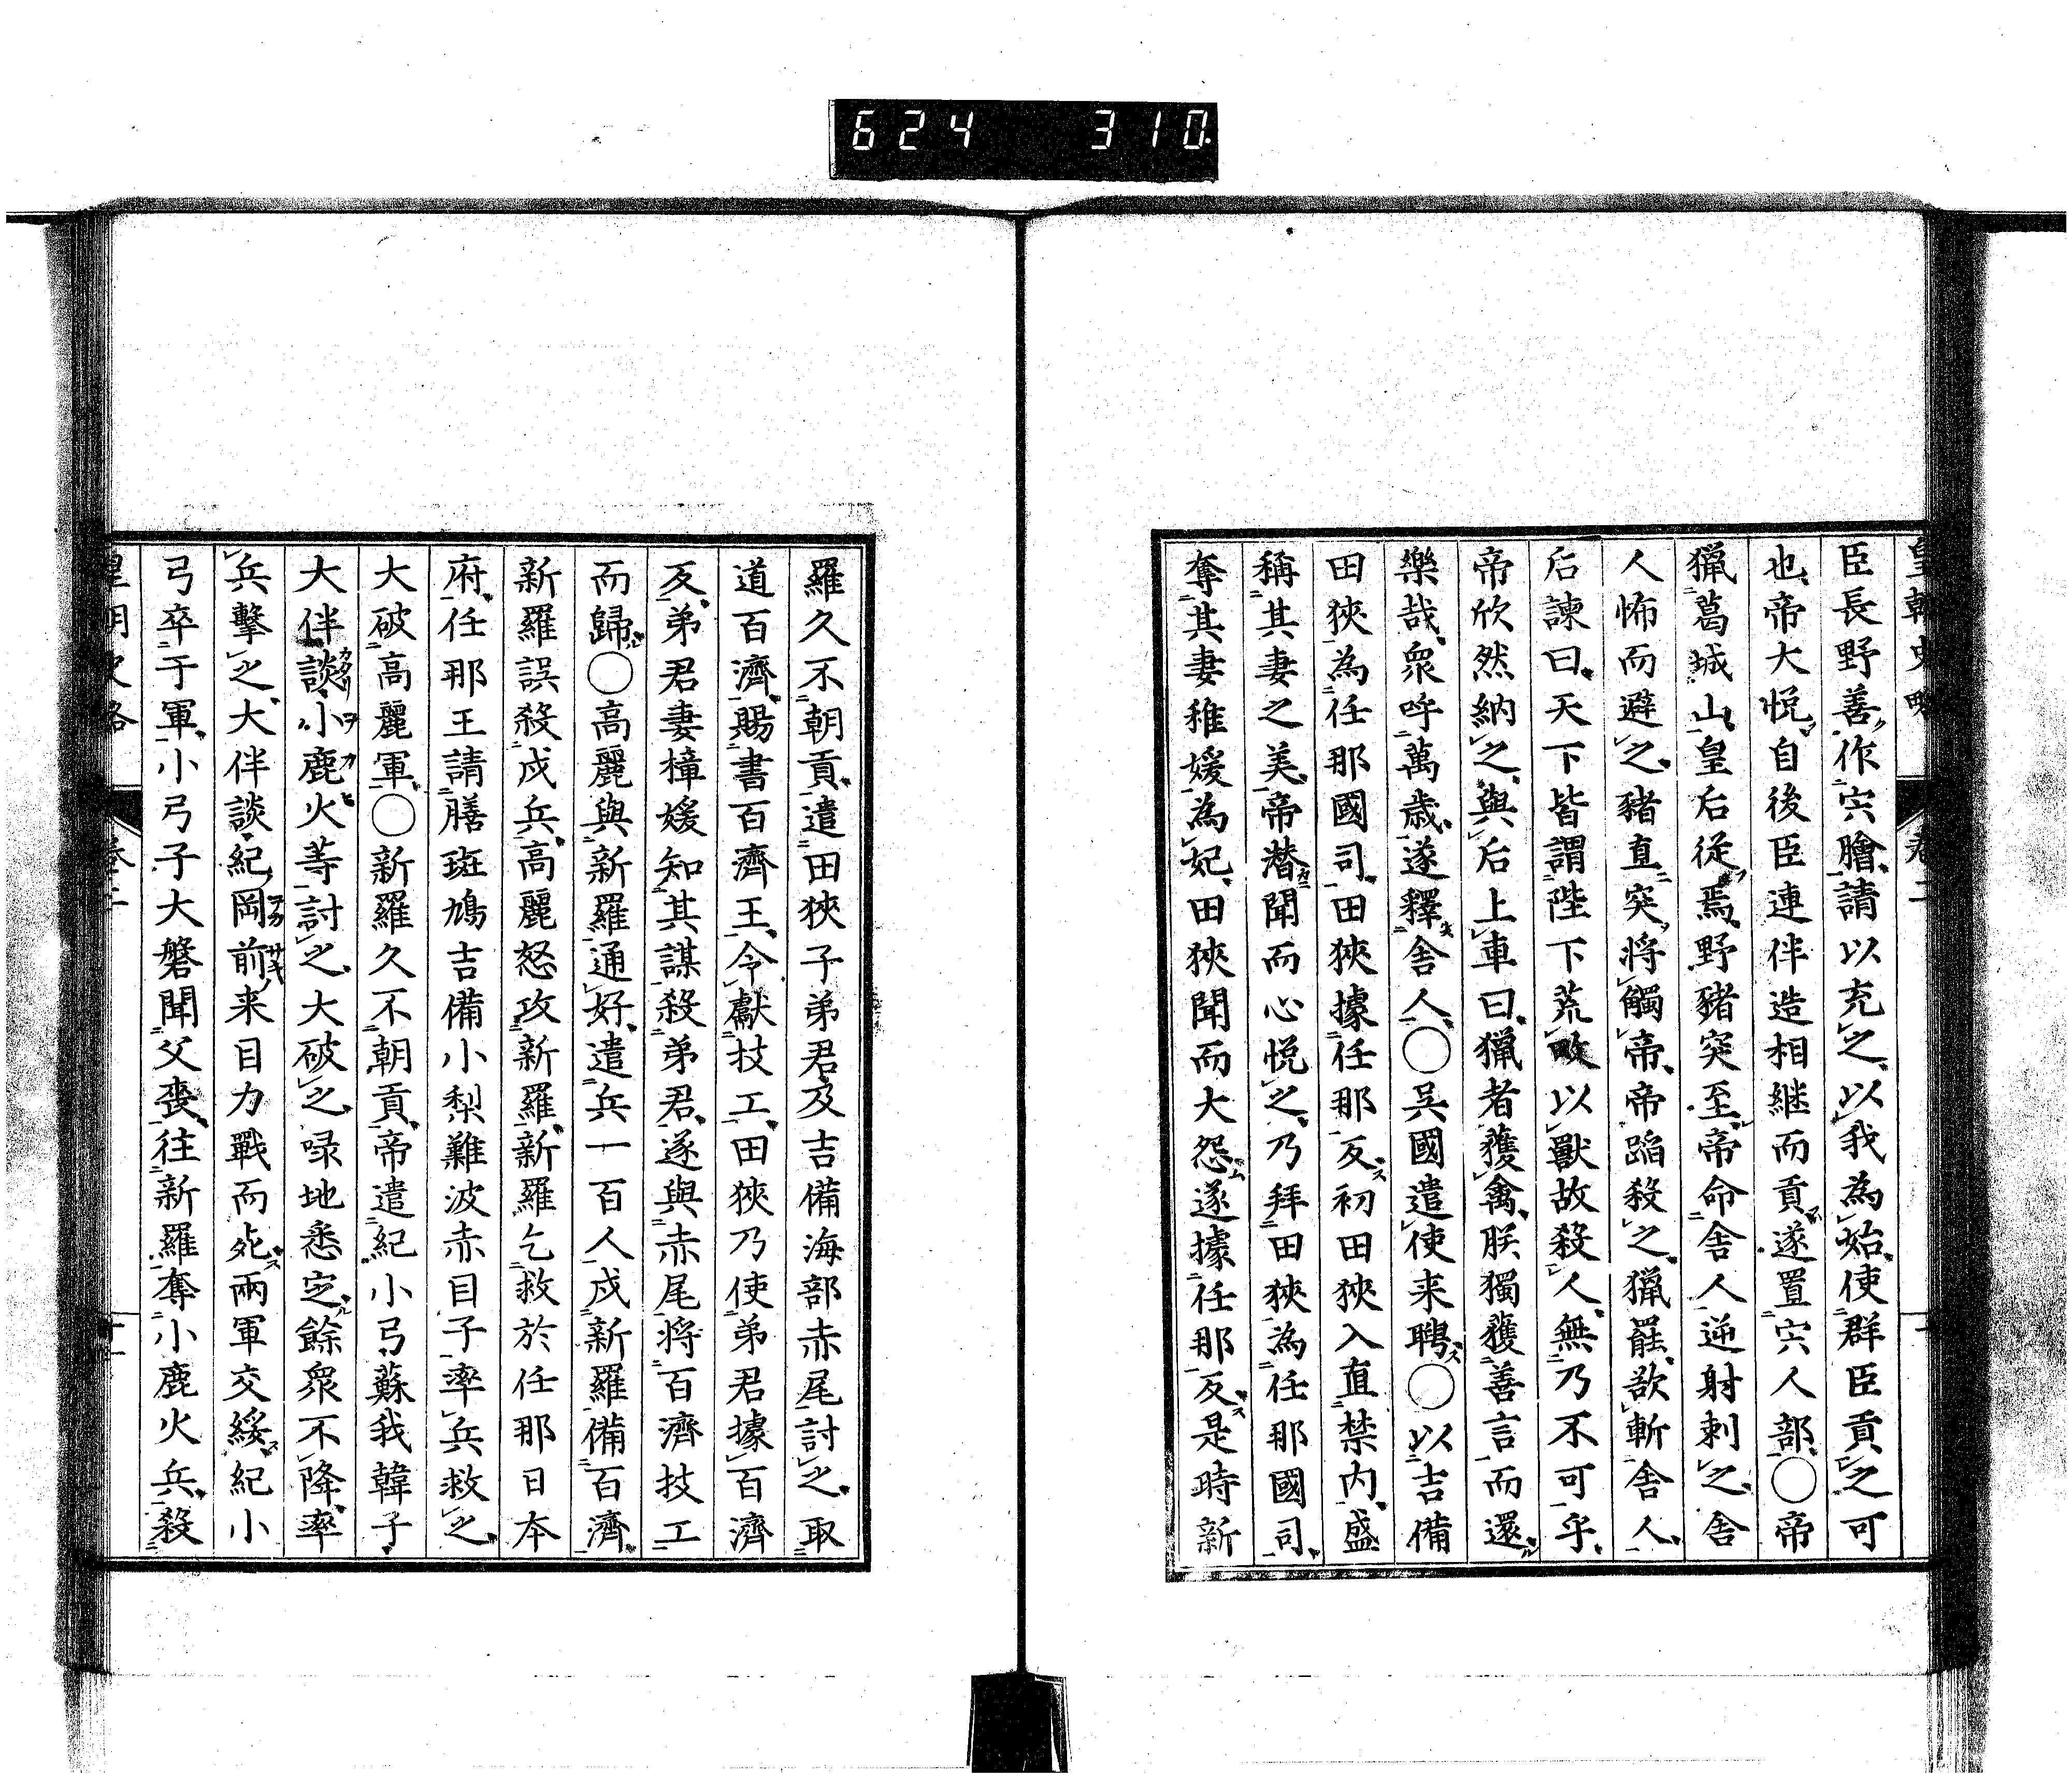 624 310
皇朝史略 卷二
臣長野善作宍膾請以充之以我為始使群臣貢之可
也帝大悦自後臣連伴造相継而貢遂置宍人部〇帝
獵葛城山皇后從焉野豬突至帝命舎人逆射刺之舎
人怖而避之豬直突將觸帝帝蹈殺之獵罷欲斬舎人
后諫曰天下皆謂陛下荒畋以獸故殺人無乃不可乎
帝欣然納之與后上車曰獵者獲禽朕獨獲善言而還
樂哉衆呼萬歳遂釋舎人〇吳國遣使来聘〇以吉備
田狹為任那國司田狹據任那反初田狹入直禁内盛
稱其妻之美帝潜聞而心悦之乃拜田狹為任那國司
奪其妻稚媛為妃田狹聞而大怨遂據任那反是時新
羅久不朝貢遣田狹子弟君及吉備海部赤尾討之取
道百濟賜書百濟王令獻技工田狹乃使弟君據百濟
反弟君妻樟媛知其謀殺弟君遂與赤尾將百濟技工
而歸〇高麗與新羅通好遣兵一百人戍新羅備百濟
新羅誤殺戍兵高麗怒攻新羅新羅乞救於任那日本
府任那王請膳斑鳩吉備小梨難波赤目子率兵救之
大破高麗軍〇新羅久不朝貢帝遣紀小弓蘇我韓子
大伴談小鹿火等討之大破之㖨地悉定餘衆不降率
兵擊之大伴談紀岡前来目力戰而死兩軍交綏紀小
弓卒于軍小弓子大磐聞父喪往新羅奪小鹿火兵殺
皇朝史略 卷二 十二